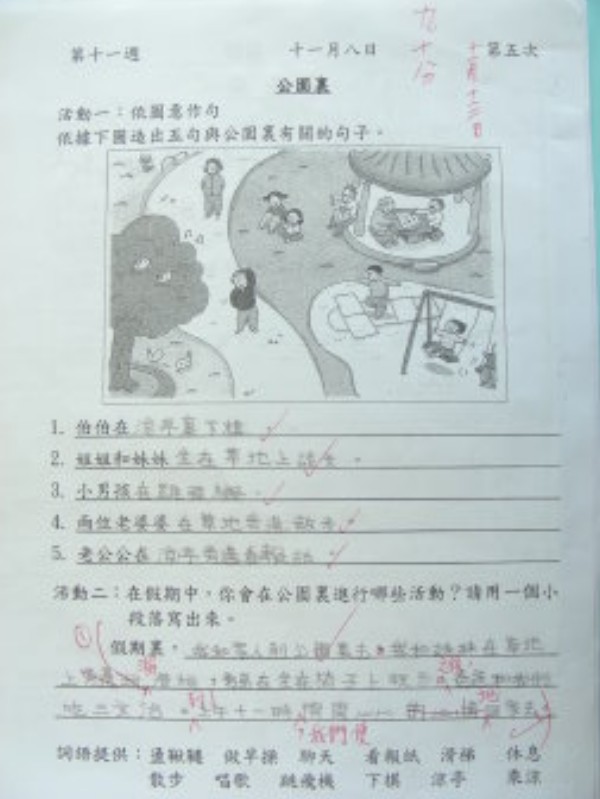 第十一週 十一月八日 第五次
九十分
十一月十三日
公園裏
活動一：依圖意作句
依據下圖造出五句與公園裏有關的句子。
1. 伯伯在涼亭裏下棋
2. 姐姐和妹妹坐在草地上談天。
3. 小男孩在跳飛機。
4. 兩位老婆婆在草地旁邊散步
5. 老公公在涼亭旁邊看報紙
活動二：在假期中，你會在公園裏進行哪些活動？請用一個小
段落寫出來。
假期裏，我和家人到公園裏去。我和妹妹在草地
上
我們便
詞語提供：盪鞦韆 做早操 聊天 看報紙 滑梯 休息
散步 唱歌 跳飛機 下棋 涼亭 乘涼